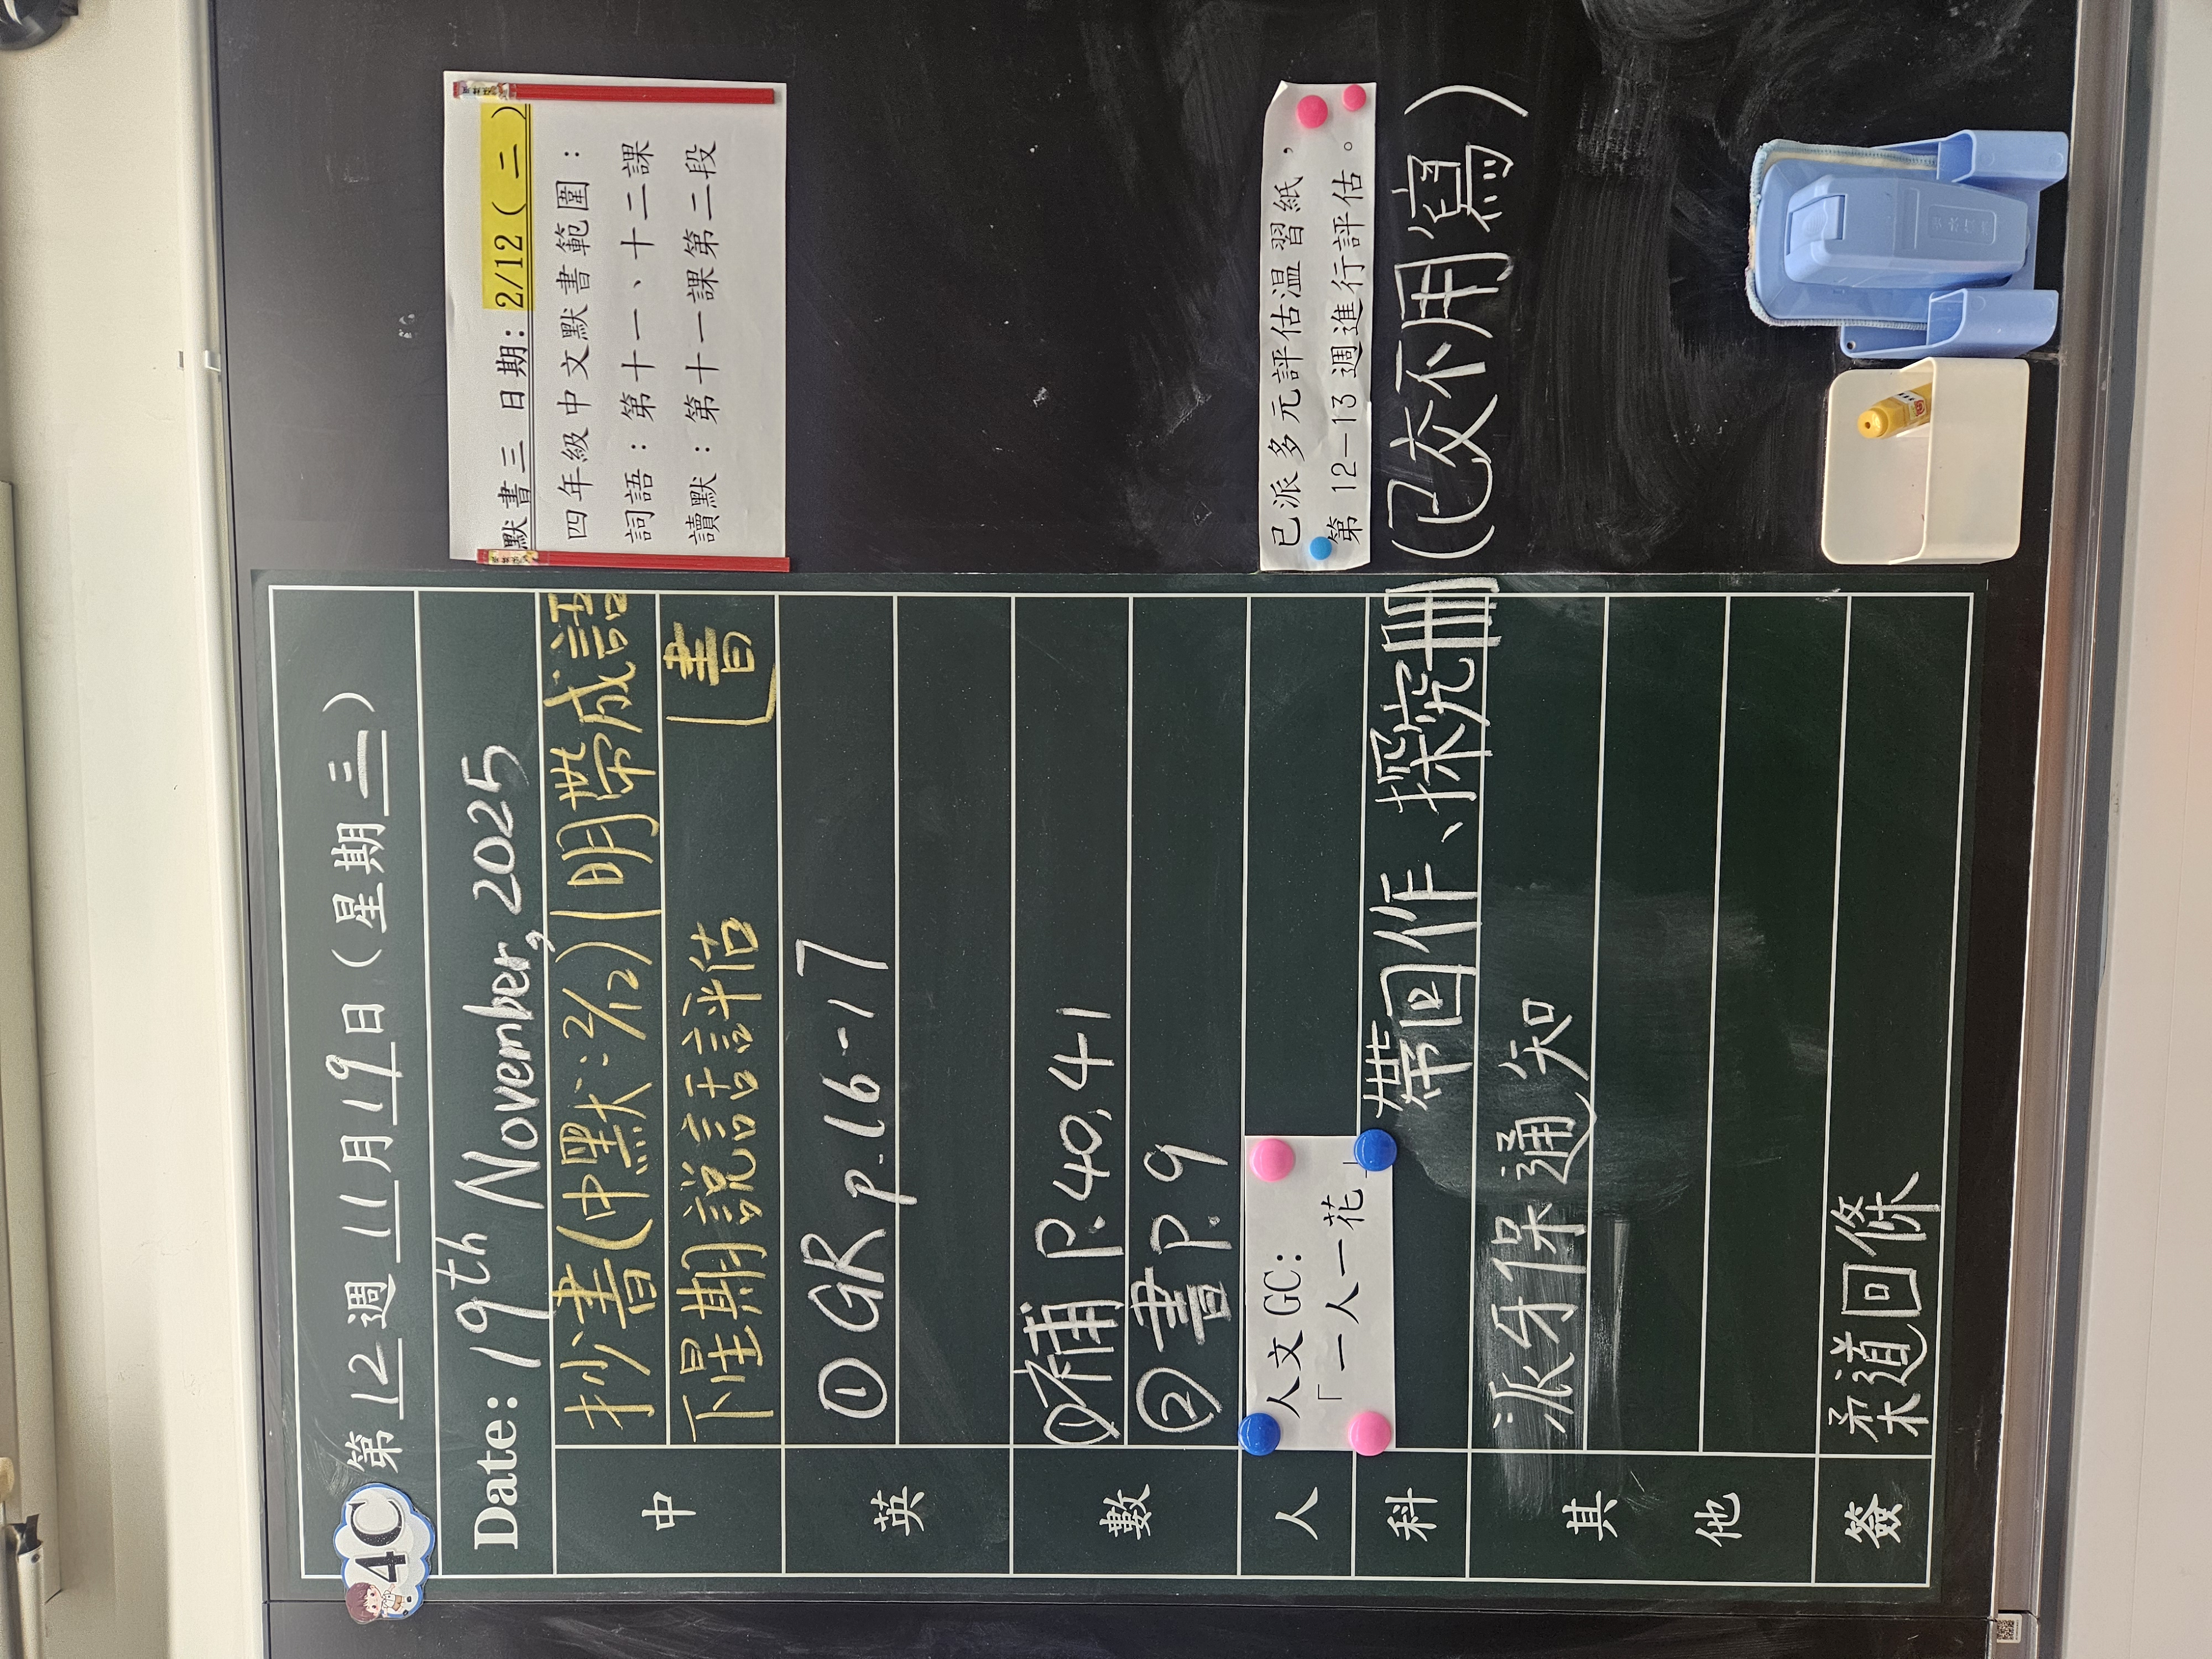 4C
第12週11月19日(星期三)
Date: 19th November, 2025
中
抄書(中默:2/12)|明帶成語
下星期說話評估 書
英
①GR p.16-17
數
①補P.40,41
②書P.9
人
人文GC:
「一人一花」
科
帶回作、探究冊(已交不用寫)
其他
派牙保通知
簽
柔道回條
默書三 日期: 2/12(二)
四年級中文默書範圍:
詞語:第十一、十二課
讀默:第十一課第二段
已派多元評估溫習紙,
第12-13週進行評估。